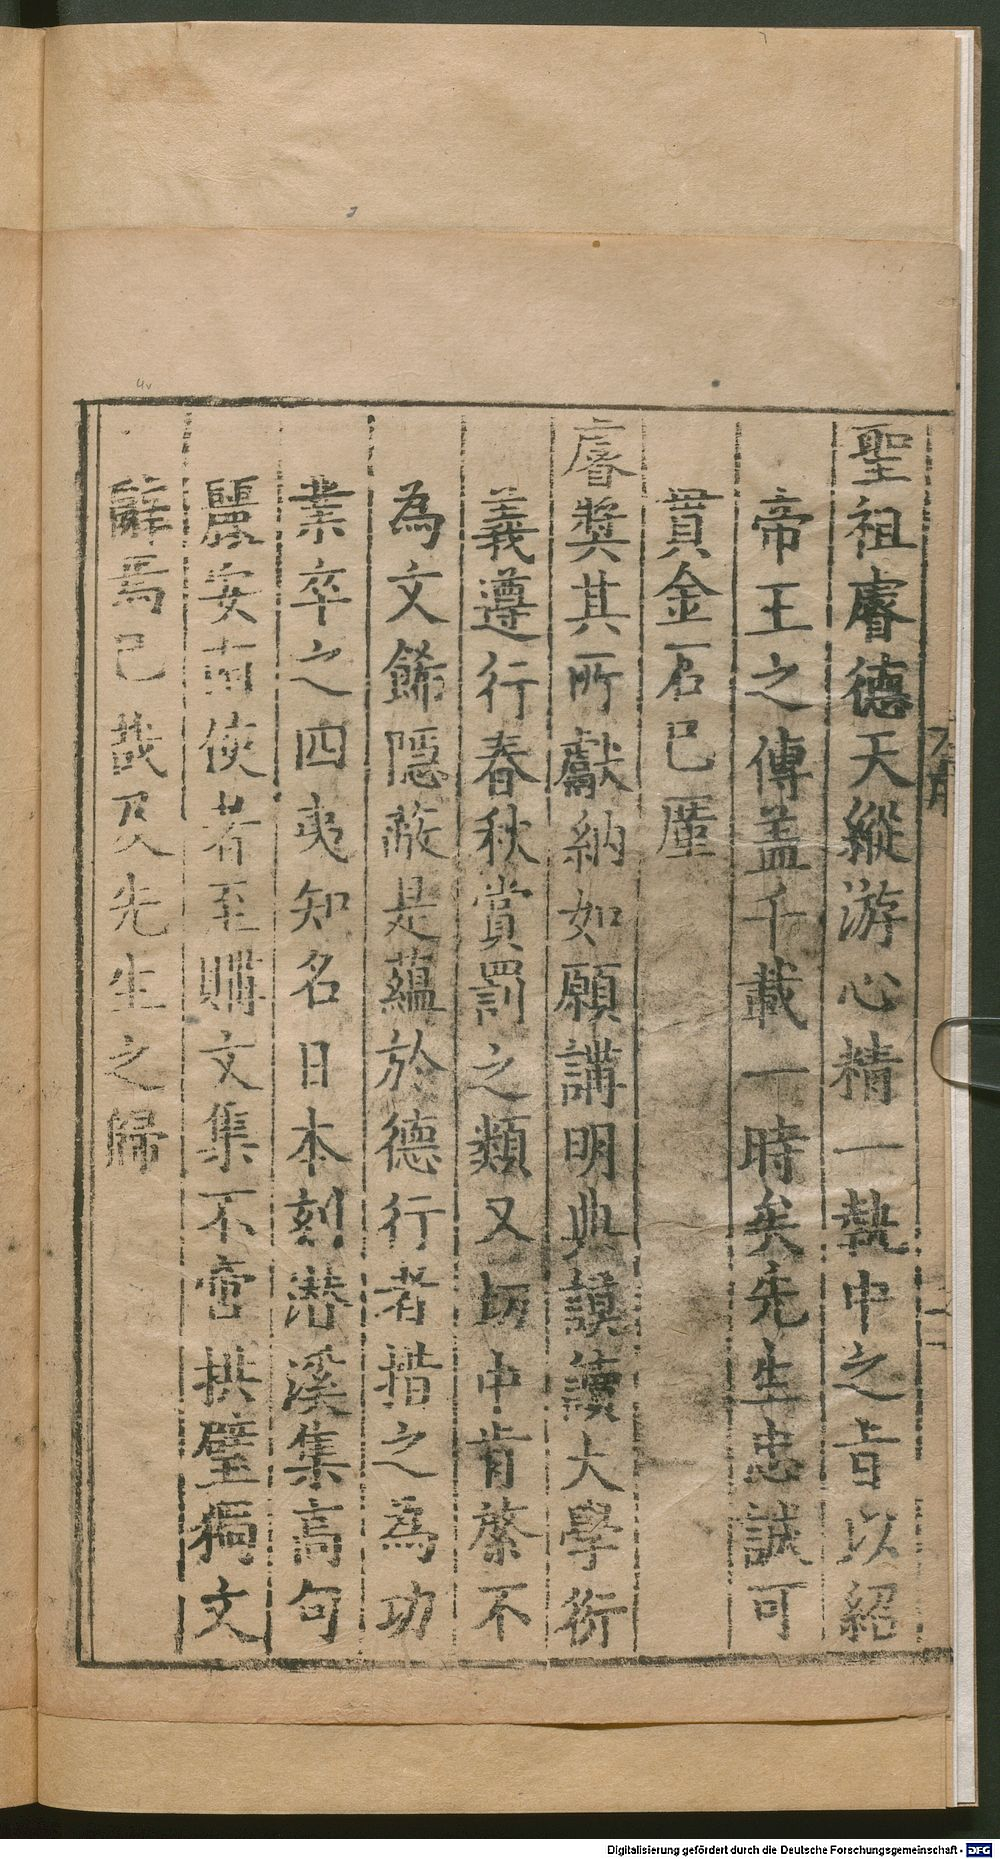 聖祖睿德天縱游心精一執中之旨以紹
帝王之傳盖千載一時矣先生忠誠可
貫金石已厪
睿奬其所獻納如願講明典謨讀大學衍
義遵行春秋賞罰之類又切中肯綮不
為文餙隱蔽是蘊於德行者措之為功
業卒之四夷知名日本刻潜溪集高句
麗安南使者至購文集不啻拱璧獨文
辭焉已哉及先生之歸
4v
Digitalisierung gefördert durch die Deutsche Forschungsgemeinschaft - DFG